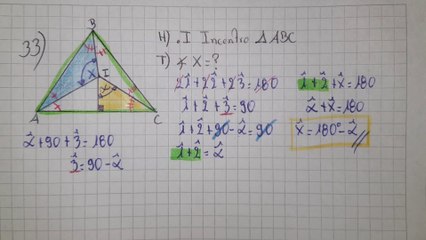 33)
B
H) .I Incentro △ABC
T) ∢ X = ?
X
I
A
C
2î+22̂+23̂=180
1̂+2̂+3̂=90
1̂+2̂+90-α̂=90
1̂+2̂=α̂
1̂+2̂+x̂=180
α̂+x̂=180
x̂=180°-α̂
α̂+90+3̂=180
3̂=90-α̂